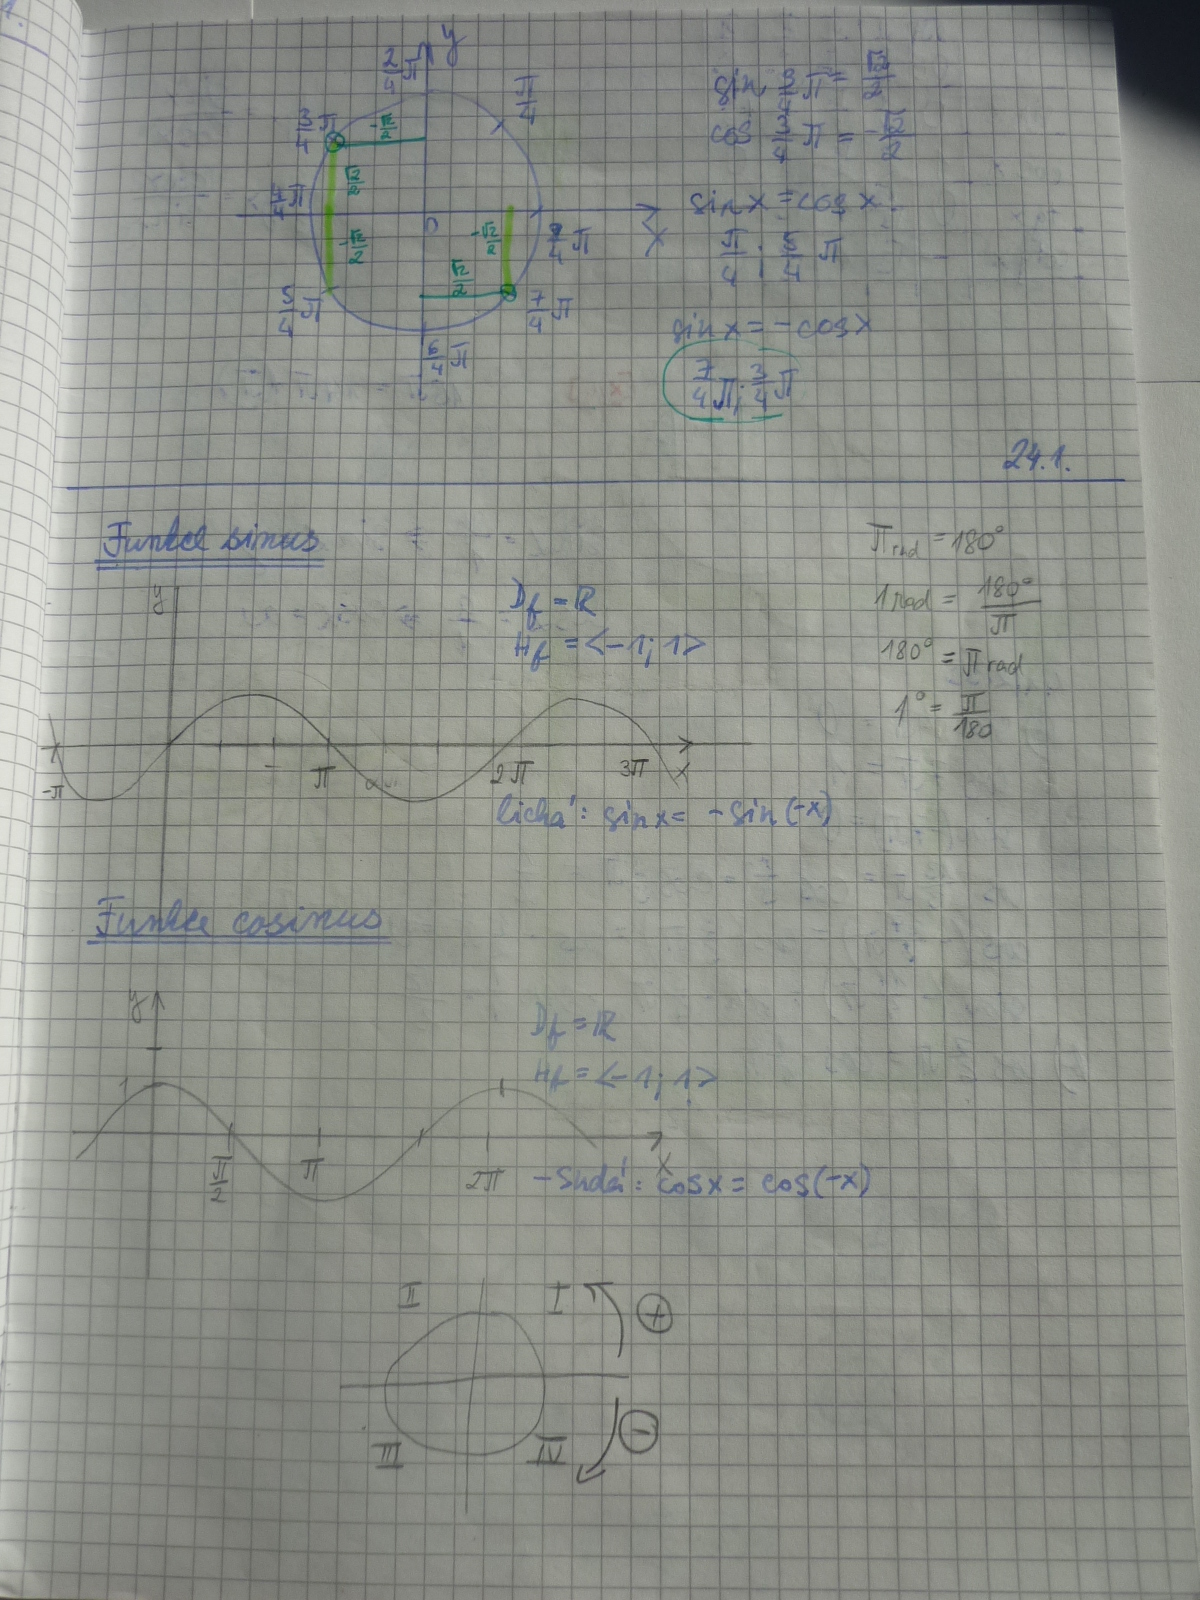 y
2/4 π
π/4
3/4 π
-√2/2
√2/2
4/4 π
0
-√2/2
-√2/2
x
√2/2
5/4 π
7/4 π
6/4 π
sin 3/4 π = √2/2
cos 3/4 π = -√2/2
sin x = cos x
π/4 ; 5/4 π
sin x = -cos x
7/4 π ; 3/4 π
24.1.
Funkce sinus
π rad = 180°
1 rad = 180°/π
180° = π rad
1° = π/180
y
Df = ℝ
Hf = <-1; 1>
-π
π
2π
3π
x
lichá: sin x = -sin(-x)
Funkce cosinus
y
Df = ℝ
Hf = <-1; 1>
1
π/2
π
2π
x
- sudá: cos x = cos(-x)
II
I
+
III
IV
-